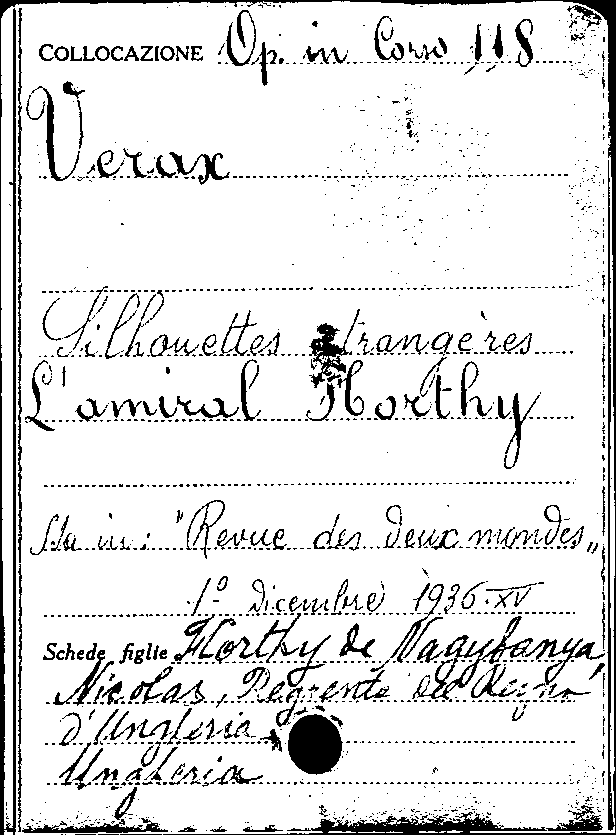 COLLOCAZIONE Op. in Corso 118
Verax
Silhouettes étrangères
L'amiral Horthy
Sta in: "Revue des deux mondes„
1º dicembre 1936-XV
Schede figlie Horthy de Nagybanya,
Nicolas, Reggente del Regno
d'Ungheria
Ungheria